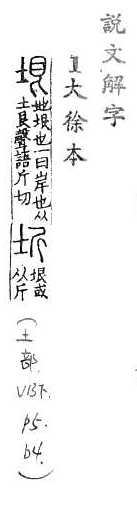 說文解字
1大徐本
垠 地垠也一曰岸也从
土艮聲語斤切
圻 垠或
从斤
(土部. V13下. p5. b4.)